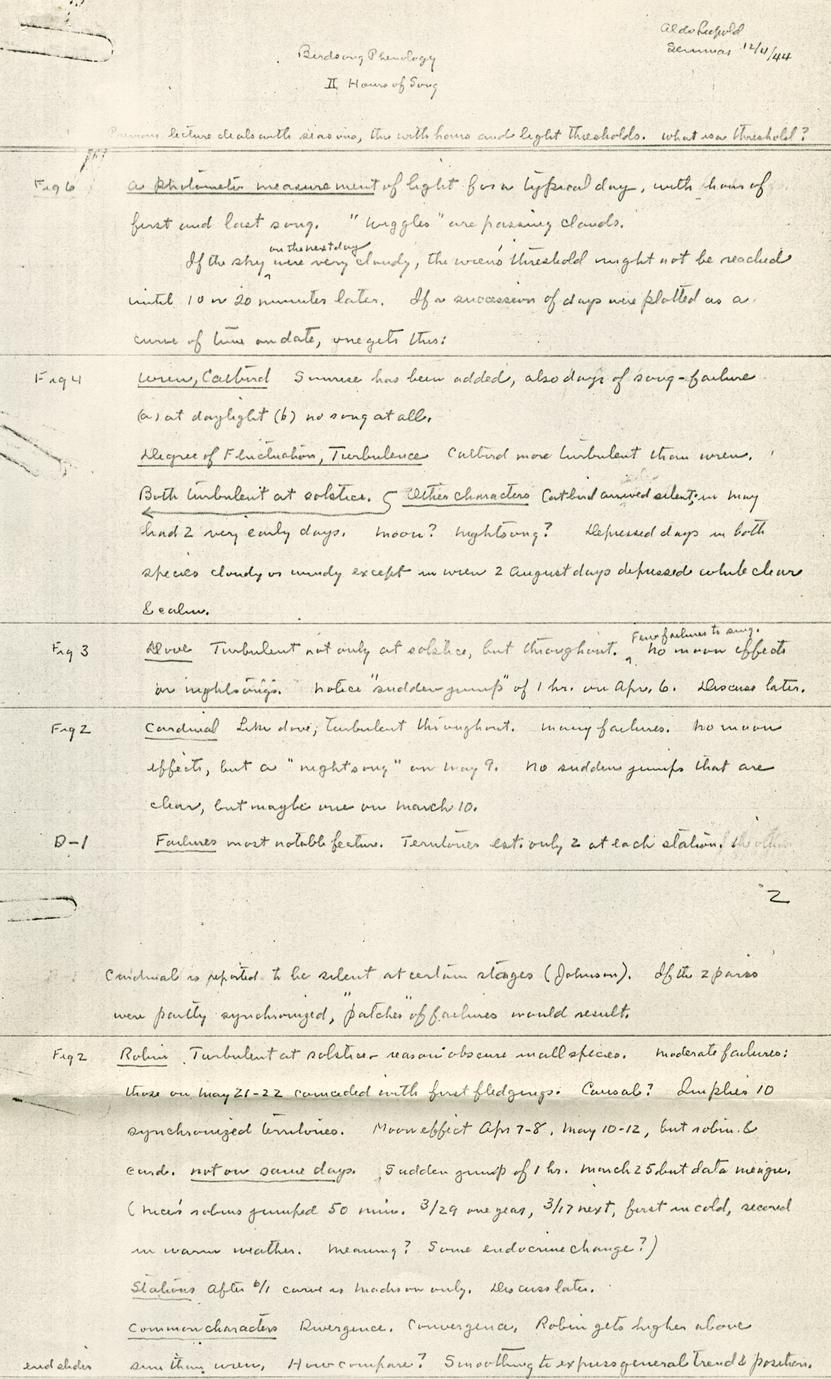 Aldo Leopold
Seminar 12/11/44
Birdsong Phenology
II Hours of Song
Previous lecture deals with seasons, this with hours and light thresholds. What is a threshold?
Fig 6 a photometer measurement of light for a typical day, with hours of
first and last song. "Wiggles" are passing clouds.
on the next day
If the sky were very cloudy, the wren's threshold might not be reached
until 10 or 20 minutes later. If a succession of days were plotted as a
curve of time on date, one gets this:
Fig 4 Wren, Catbird Sunrise has been added, also days of song-failure
(a) at daylight (b) no song at all.
Degree of Fluctuation, Turbulence Catbird more turbulent than wren.
Both turbulent at solstice. Other characters Catbird arrived silent; in May
had 2 very early days. Moon? Nightsong? Depressed days in both
species cloudy or windy except in wren 2 August days depressed while clear
& calm.
Few failures to sing.
Fig 3 Dove Turbulent not only at solstice, but throughout. No moon effects
or nightsongs. Notice "sudden jump" of 1 hr. on Apr. 6. Discuss later.
Fig 2 Cardinal Like dove, turbulent throughout. Many failures. No moon
effects, but a "nightsong" on May 9. No sudden jumps that are
clear, but maybe one on March 10.
D-1 Failures most notable feature. Territories est. only 2 at each station.
2
Cardinal is reported to be silent at certain stages (Johnson). If the 2 pairs
were partly synchronized, "patches" of failures would result.
Fig 2 Robin Turbulent at solstice - reason obscure in all species. Moderate failures:
those on May 21-22 coincided with first fledgings. Causal? Implies 10
synchronized territories. Moon effect Apr 7-8, May 10-12, but robin &
card. not on same days. Sudden jump of 1 hr. March 25 but data meagre.
(Nice's robins jumped 50 min. 3/29 one year, 3/17 next, first in cold, second
in warm weather. Meaning? Some endocrine change?)
Stations After 6/1 curve is Madison only. Discuss later.
Common characters Divergence. Convergence, Robin gets higher above
end slides sun than wren. How compare? Smoothing to express general trend & position.